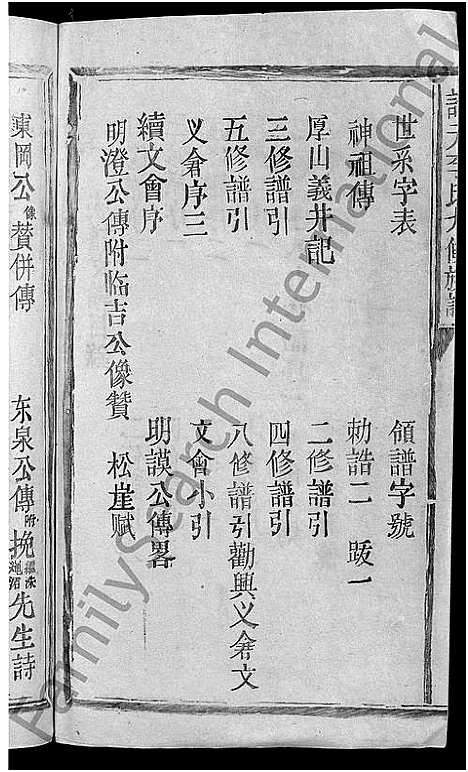 世系字表 領譜字號
神祖傳 勅誥二 跋一
厚山義井記 二修譜引
三修譜引 四修譜引
五修譜引 八修譜引勸興义倉文
义倉序三 文會小引
續文會序 明謨公傳畧
明澄公傳附临吉公像贊 松崖赋
東岡公像贊併傳 东泉公傳附挽 先生詩
FamilySearch International